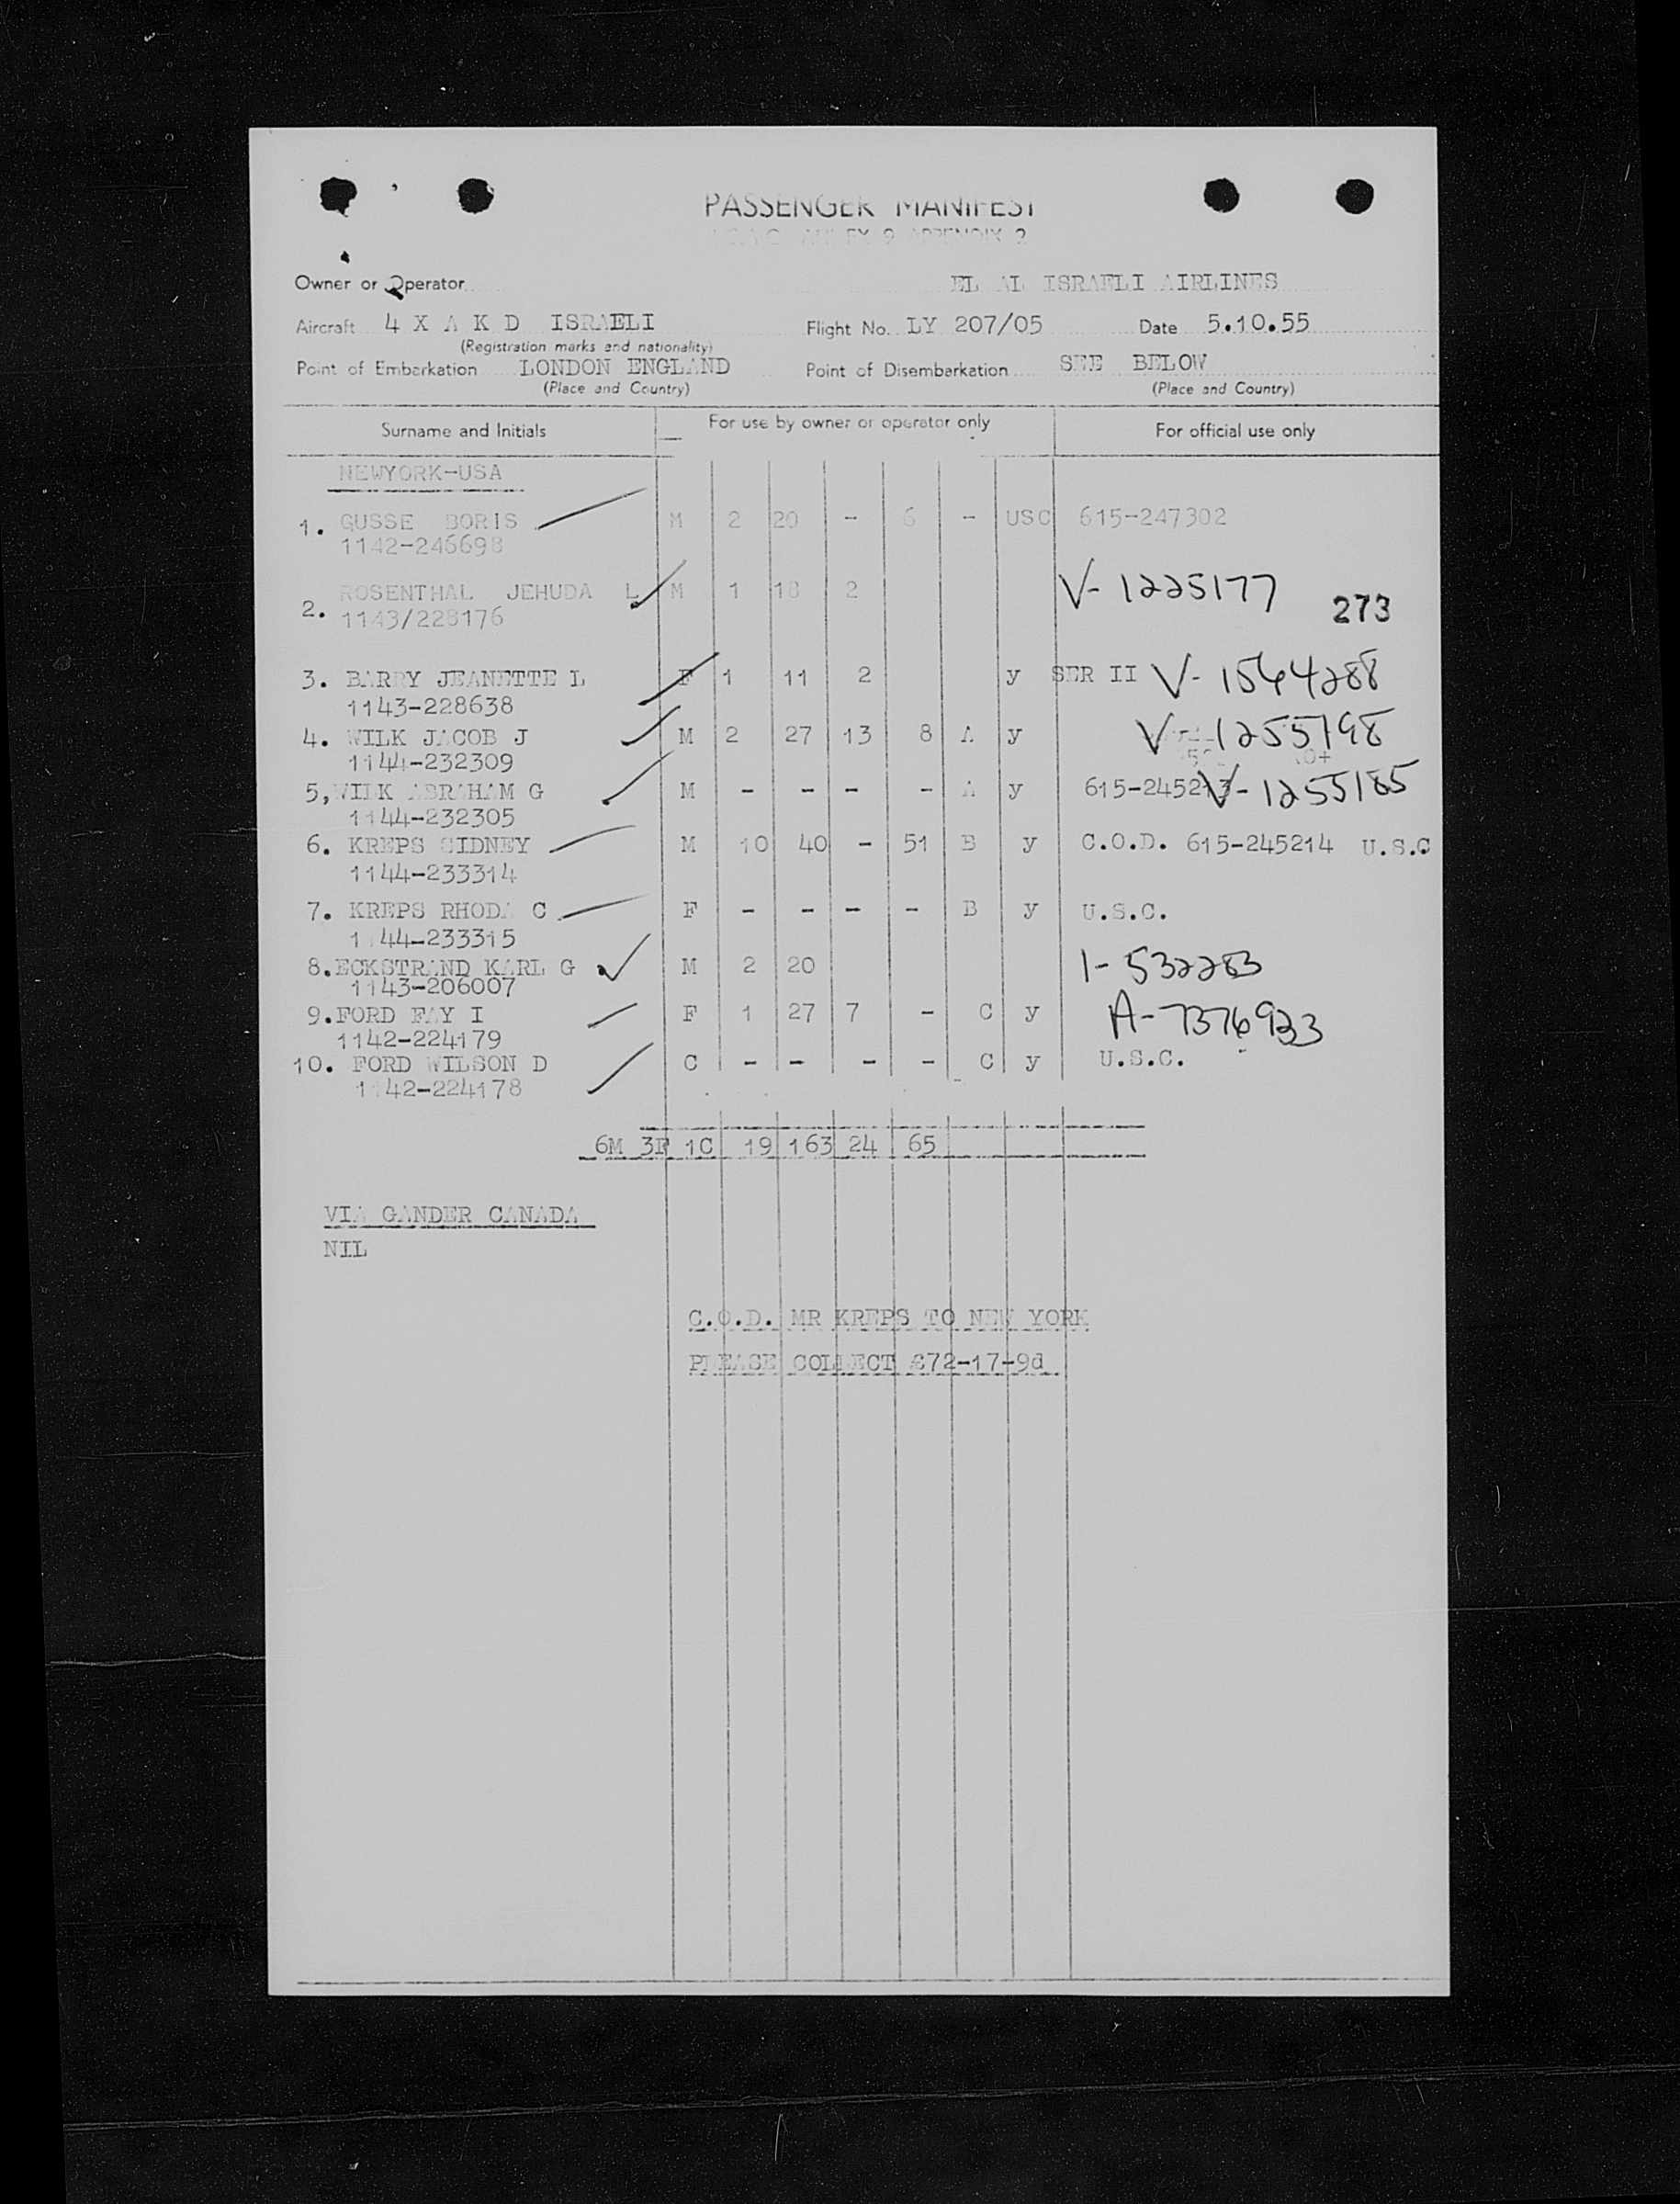 PASSENGER MANIFEST
ANNEX 9 APPENDIX 2
Owner or Operator EL AL ISRAELI AIRLINES
Aircraft 4 X A K D ISRAELI Flight No. LY 207/05 Date 5.10.55
(Registration marks and nationality)
Point of Embarkation LONDON ENGLAND Point of Disembarkation SEE BELOW
(Place and Country) (Place and Country)
Surname and Initials For use by owner or operator only For official use only
NEWYORK-USA
1. GUSSE BORIS M 2 20 - 6 - USC 615-247302
1142-246698
2. ROSENTHAL JEHUDA L M 1 18 2 V-1225177
1143/228176 273
3. BARRY JEANETTE L F 1 11 2 y SER II V-1564288
1143-228638
4. WILK JACOB J M 2 27 13 8 A y V-1255198
1144-232309
5, WILK ABRAHAM G M - - - - A y 615-245213 V-1255185
1144-232305
6. KREPS SIDNEY M 10 40 - 51 B y C.O.D. 615-245214 U.S.C
1144-233314
7. KREPS RHODA C F - - - - B y U.S.C.
1144-233315
8. ECKSTRAND KARL G M 2 20 1-532283
1143-206007
9. FORD FAY I F 1 27 7 - C y A-7376933
1142-224179
10. FORD WILSON D C - - - - C y U.S.C.
1142-224178
6M 3F 1C 19 163 24 65
VIA GANDER CANADA
NIL
C.O.D. MR KREPS TO NEW YORK
PLEASE COLLECT £72-17-9d